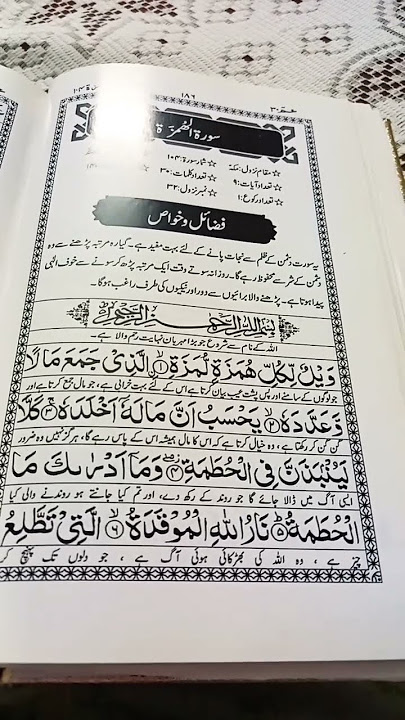 عم ٣٠
١٨٦
١٠٤
سورة الهمزة
☆ مقام نزول: مکہ
☆ شمار سورة: ۱۰۴
☆ تعداد آیات: ۹
☆ تعداد کلمات: ۳۰
☆ تعداد رکوع: ۱
☆ نمبر نزول: ۳۲
فضائل وخواص
یہ سورت دشمن کے ظلم سے نجات پانے کے لئے بہت مفید ہے۔ گیارہ مرتبہ پڑھنے سے وہ
دشمن کے شر سے محفوظ رہے گا۔ روزانہ سوتے وقت ایک مرتبہ پڑھ کر سونے سے خوف الٰہی
پیدا ہوتا ہے۔ پڑھنے والا برائیوں سے دور اور نیکیوں کی طرف راغب ہوگا۔
بسم الله الرحمن الرحيم
اللہ کے نام سے شروع جو بڑا مہربان نہایت رحم والا ہے۔
وَيْلٌ لِّكُلِّ هُمَزَةٍ لُّمَزَةِ ۙ﴿١﴾ الَّذِىْ جَمَعَ مَالًا
جو لوگوں کے سامنے اور پس پشت عیب بیان کرتا ہے اس کے لئے بہت خرابی ہے، جو مال جمع کرتا ہے اور
وَّعَدَّدَهٗ ۙ﴿٢﴾ يَحْسَبُ اَنَّ مَالَهٗۤ اَخْلَدَهٗ ۚ﴿٣﴾ كَلَّا
گن گن کر رکھتا ہے، وہ خیال کرتا ہے کہ اس کا مال ہمیشہ اس کے پاس رہے گا، ہرگز نہیں وہ ضرور
لَيُنْۢبَذَنَّ فِى الْحُطَمَةِ ۖ﴿٤﴾ وَمَاۤ اَدْرٰىكَ مَا
ایسی آگ میں ڈالا جائے گا جو روند کے رکھ دے، اور تم کیا جانتے ہو روندنے والی کیا
الْحُطَمَةُ ؕ﴿٥﴾ نَارُ اللّٰهِ الْمُوْقَدَةُ ۙ﴿٦﴾ الَّتِىْ تَطَّلِعُ
چیز ہے، وہ اللہ کی بھڑکائی ہوئی آگ ہے، جو دلوں تک پہنچ کر